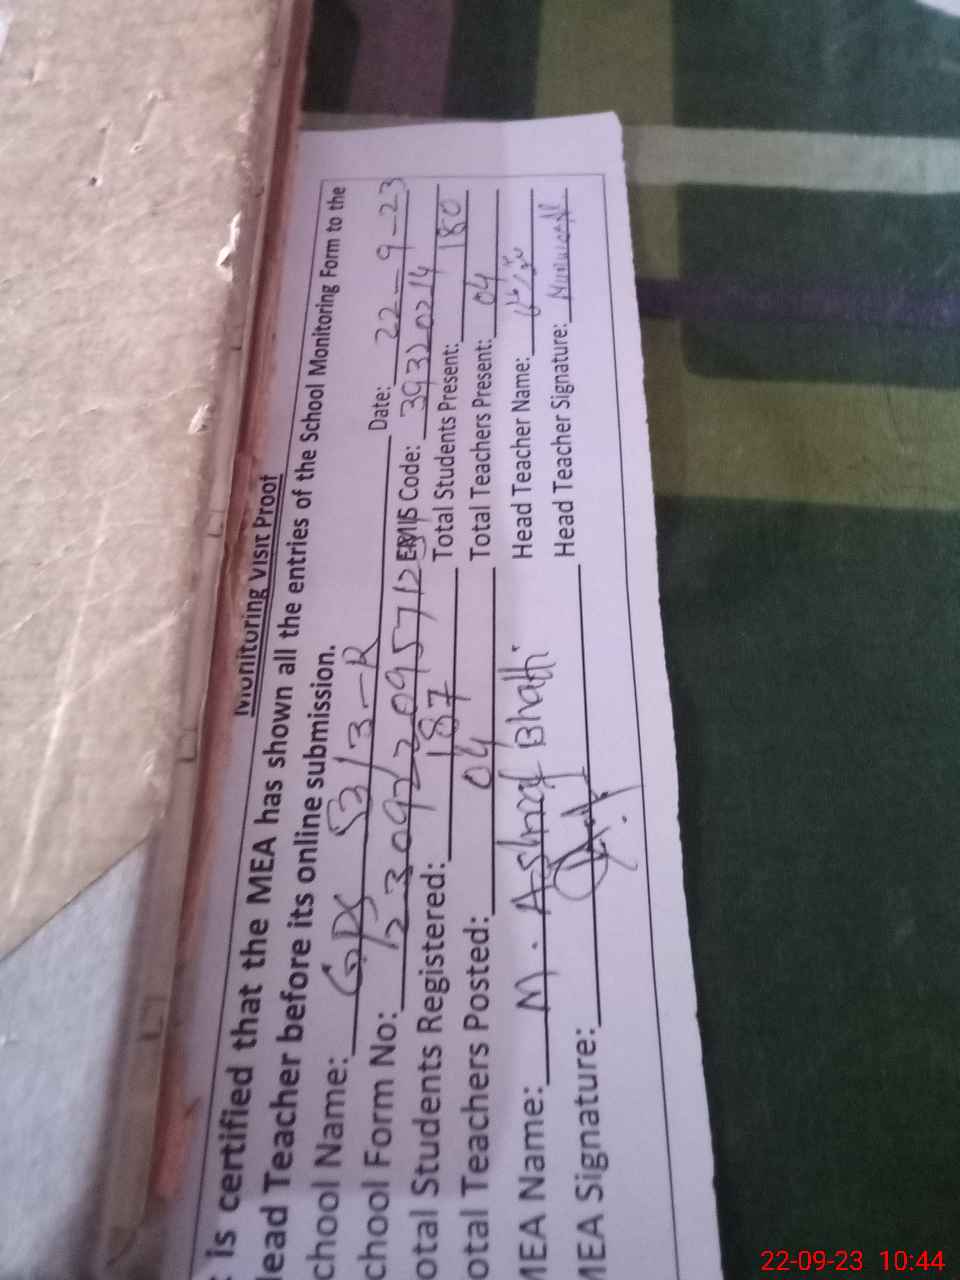 Monitoring Visit Proof
is certified that the MEA has shown all the entries of the School Monitoring Form to the
lead Teacher before its online submission.
chool Name: GPS 53/3-R Date: 22-9-23
chool Form No: EMIS Code: 39320214
otal Students Registered: 187 Total Students Present: 180
otal Teachers Posted: 04 Total Teachers Present: 04
MEA Name: M. Ashraf Bhatti Head Teacher Name:
MEA Signature: Head Teacher Signature:
22-09-23 10:44